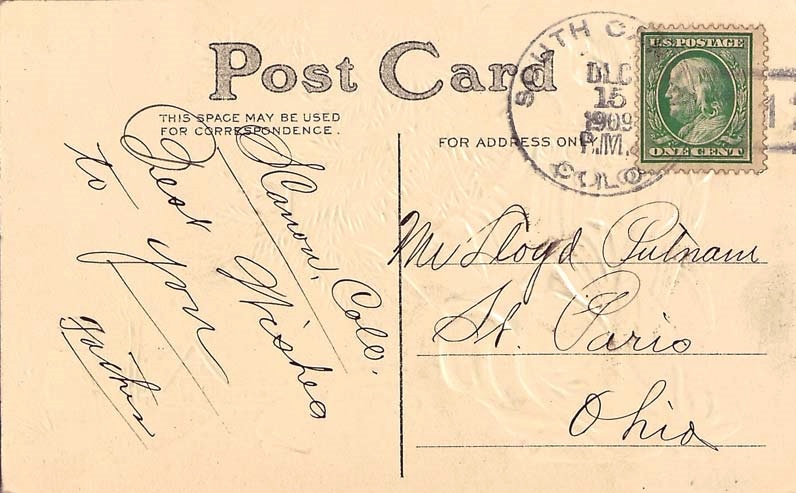 Post Card
THIS SPACE MAY BE USED
FOR CORRESPONDENCE.
FOR ADDRESS ONLY
SOUTH CA
DEC
15
1909
P.M.
COLO.
U.S. POSTAGE
ONE CENT
1
S. Canon, Colo.
Best Wishes
to you
Mr Lloyd Putnam
St. Paris
Ohio